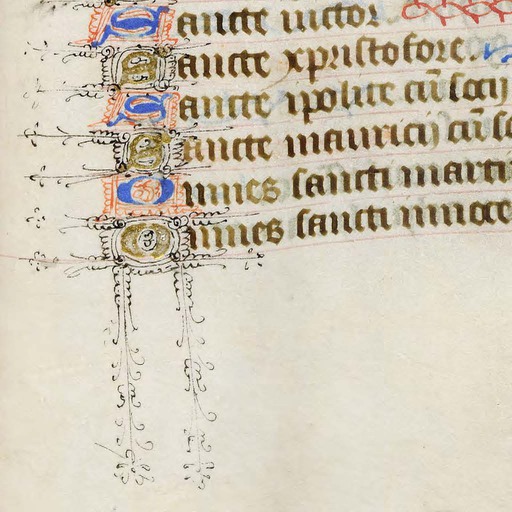 Sancte uictor
Sancte xpristofore
Sancte ipolite cū socij
Sancte mauricij cū so
Omnes sancti marti
Omnes sancti innoce